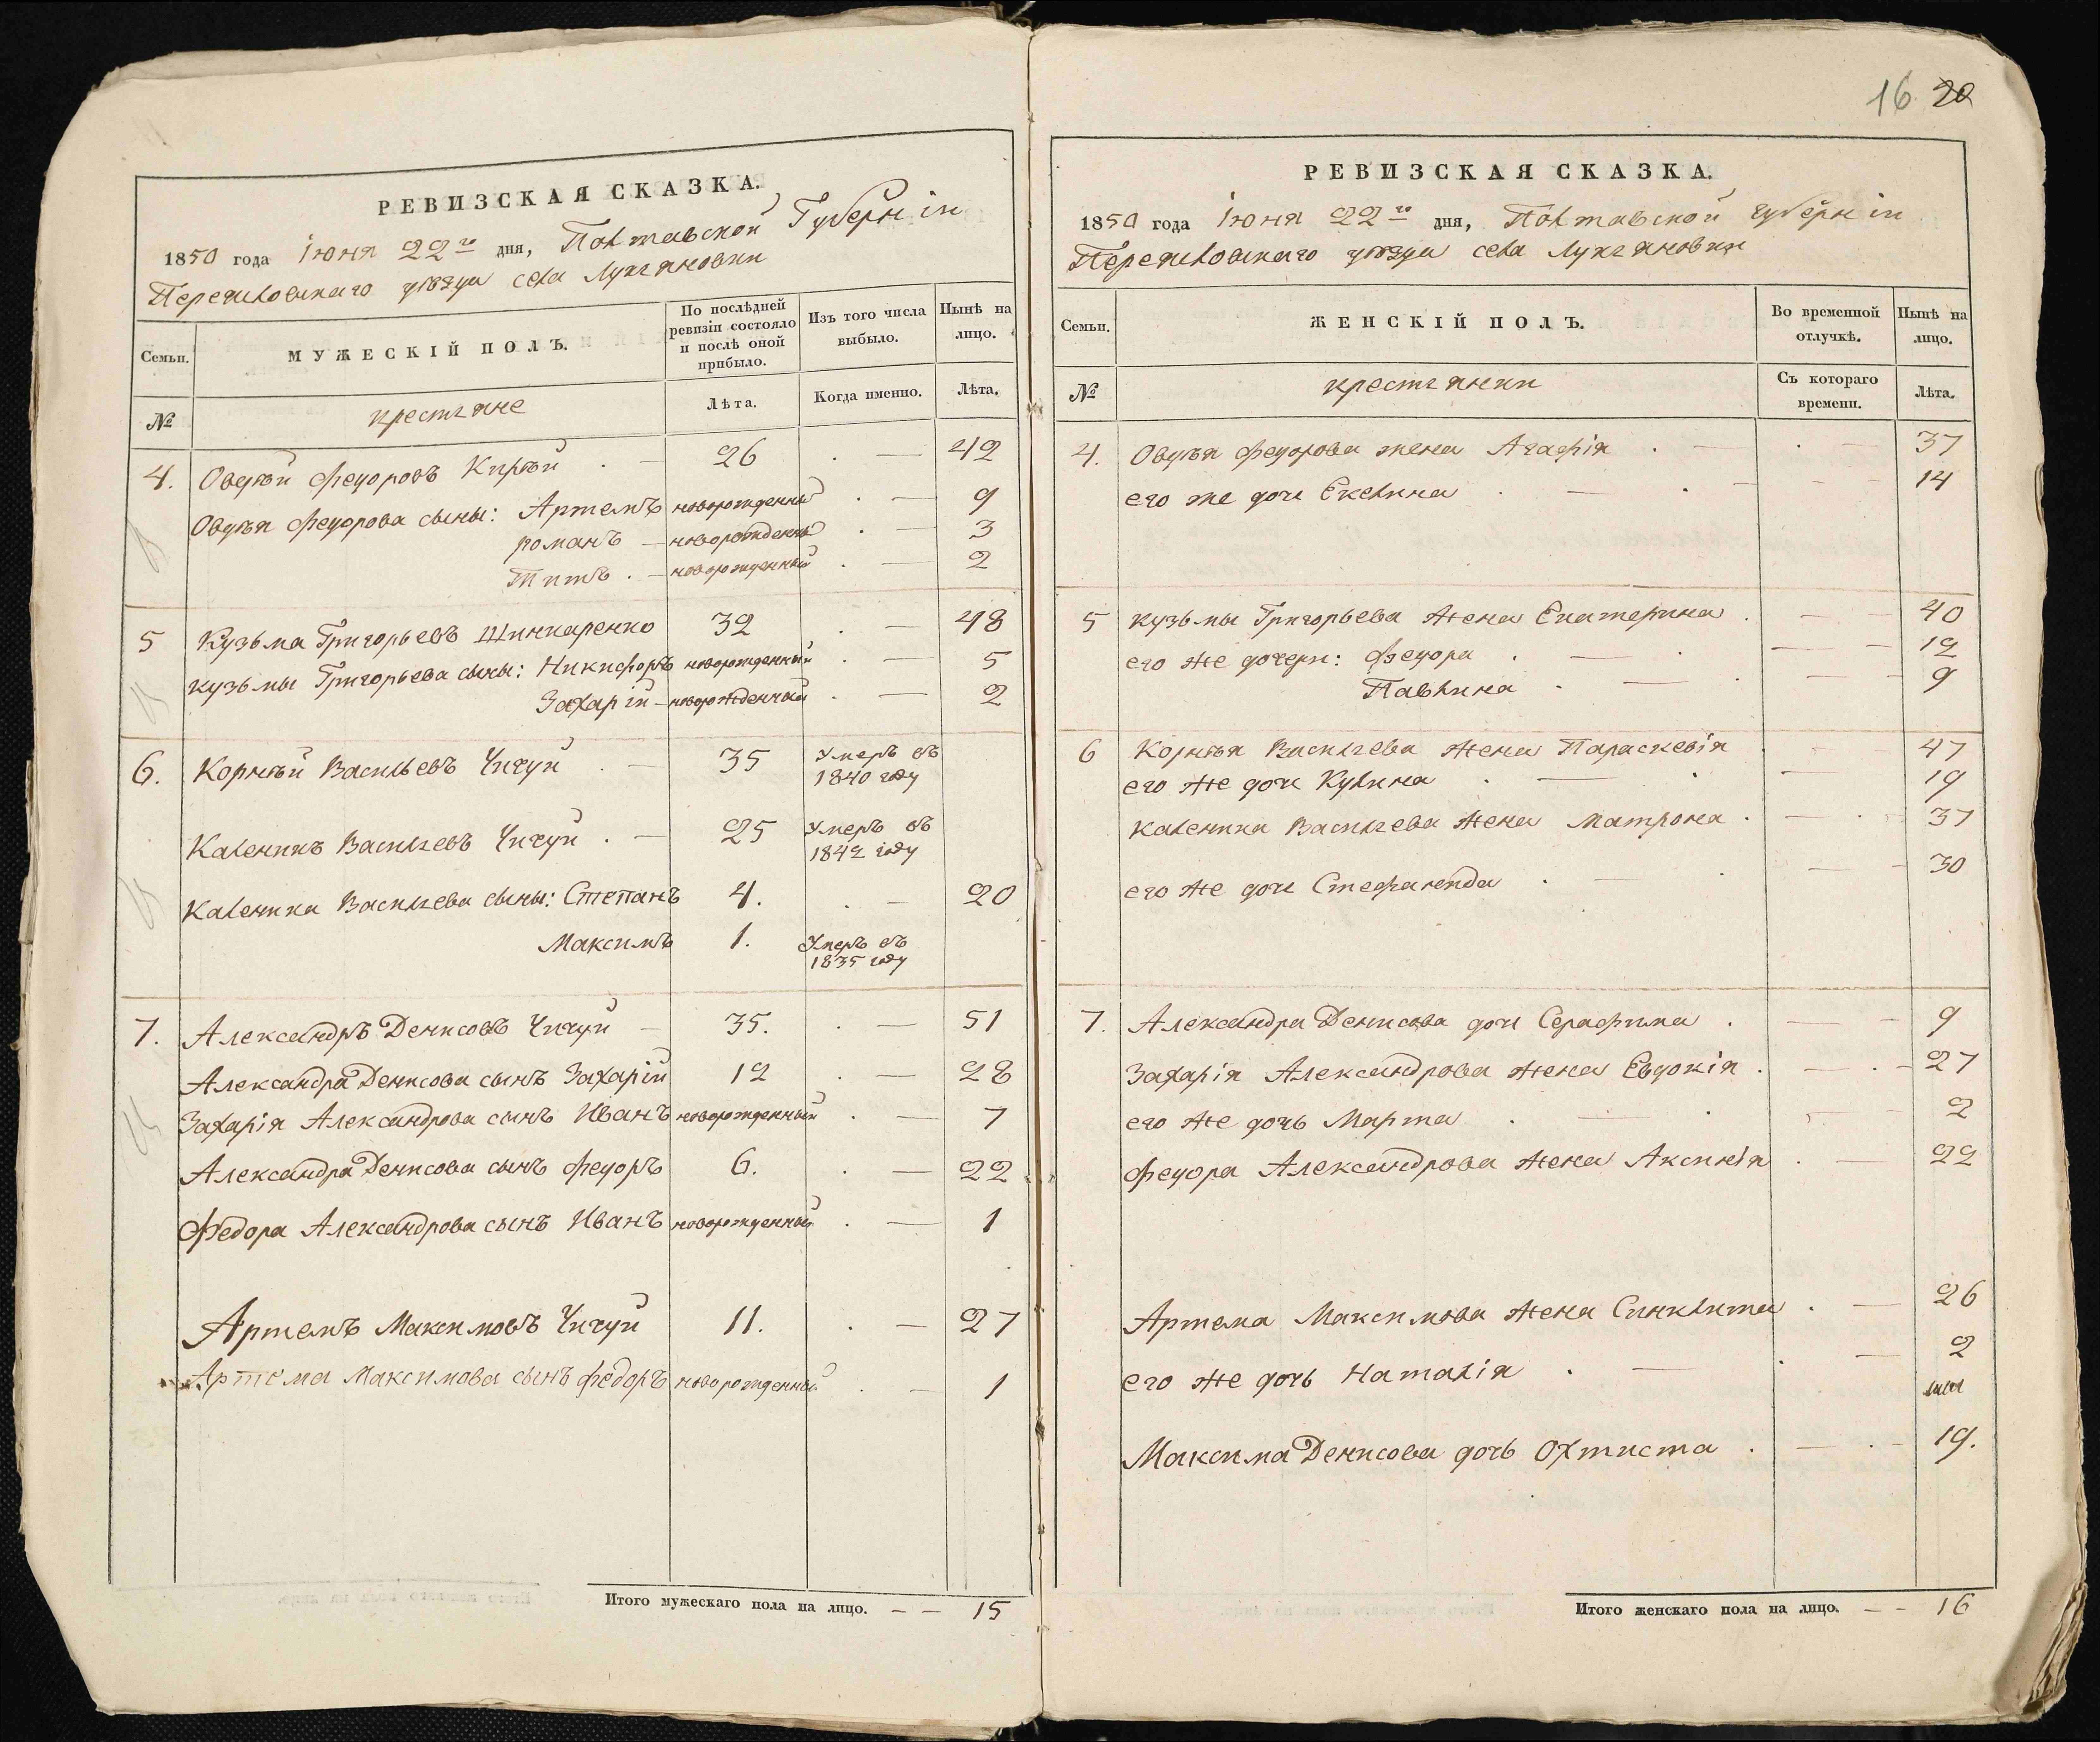 16 20
РЕВИЗСКАЯ СКАЗКА.
1850 года Іюня 22го дня, Полтавской Губерніи
Переяславскаго уѣзда села Лукьяновки
Семьи.
МУЖЕСКІЙ ПОЛЪ.
По послѣдней ревизіи состояло и послѣ оной прибыло.
Изъ того числа выбыло.
Нынѣ на лицо.
№
крестьяне
Лѣта.
Когда именно.
Лѣта.
4. Овдѣй Федоровъ Кирѣй . — 26 . — 42
Овдѣя Федорова сыны: Артемъ новорожденный . — 9
романъ — новорожденный . — 3
Титъ . — новорожденный . — 2
5 Кузьма Григорьевъ Шинкаренко 32 . — 48
Кузьмы Григорьева сыны: Никифоръ новорожденный . — 5
Захарій — новорожденный . — 2
6. Корнѣй Васильевъ Чичуй . — 35 Умеръ въ
1840 году
Каленикъ Васильевъ Чичуй . — 25 Умеръ въ
1842 году
Каленика Васильева сыны: Степанъ 4. . — 20
Максимъ 1. Умеръ въ
1835 году
7. Александръ Денисовъ Чичуй — 35. . — 51
Александра Денисова сынъ Захарій 12 . — 28
Захарія Александрова сынъ Иванъ новорожденный . — 7
Александра Денисова сынъ Федоръ 6. . — 22
Федора Александрова сынъ Иванъ новорожденный . — 1
Артемъ Максимовъ Чичуй 11. . — 27
Артема Максимова сынъ Федоръ новорожденный . — 1
Итого мужескаго пола на лицо. — — 15
РЕВИЗСКАЯ СКАЗКА.
1850 года Іюня 22го дня, Полтавской губерніи
Переяславскаго уѣзда села Лукьяновки
Семьи.
ЖЕНСКІЙ ПОЛЪ.
Во временной отлучкѣ.
Нынѣ на лицо.
№
крестьянки
Съ котораго времени.
Лѣта.
4. Овдѣя Федорова жена Агафія . — . — 37
его же дочь Екелина . — . — 14
5 Кузьмы Григорьева жена Екатерина . — 40
его же дочери: Федора . — . — 12
Павлина . — . — 9
6 Корнѣя Васильева жена Параскевія . — 47
его же дочь Кулина . — . — 19
Каленика Васильева жена Матрона . — . 37
его же дочь Стефанида . — . — 30
7. Александра Денисова дочь Серафима . — 9
Захарія Александрова жена Евдокія . — . — 27
его же дочь Марта . — . 2
Федора Александрова жена Аксинія . — 22
Артема Максимова жена Синклита . — 26
его же дочь Наталія . — . — 2
Максима Денисова дочь Охтиста . — . — 19.
Итого женскаго пола на лицо. — — 16